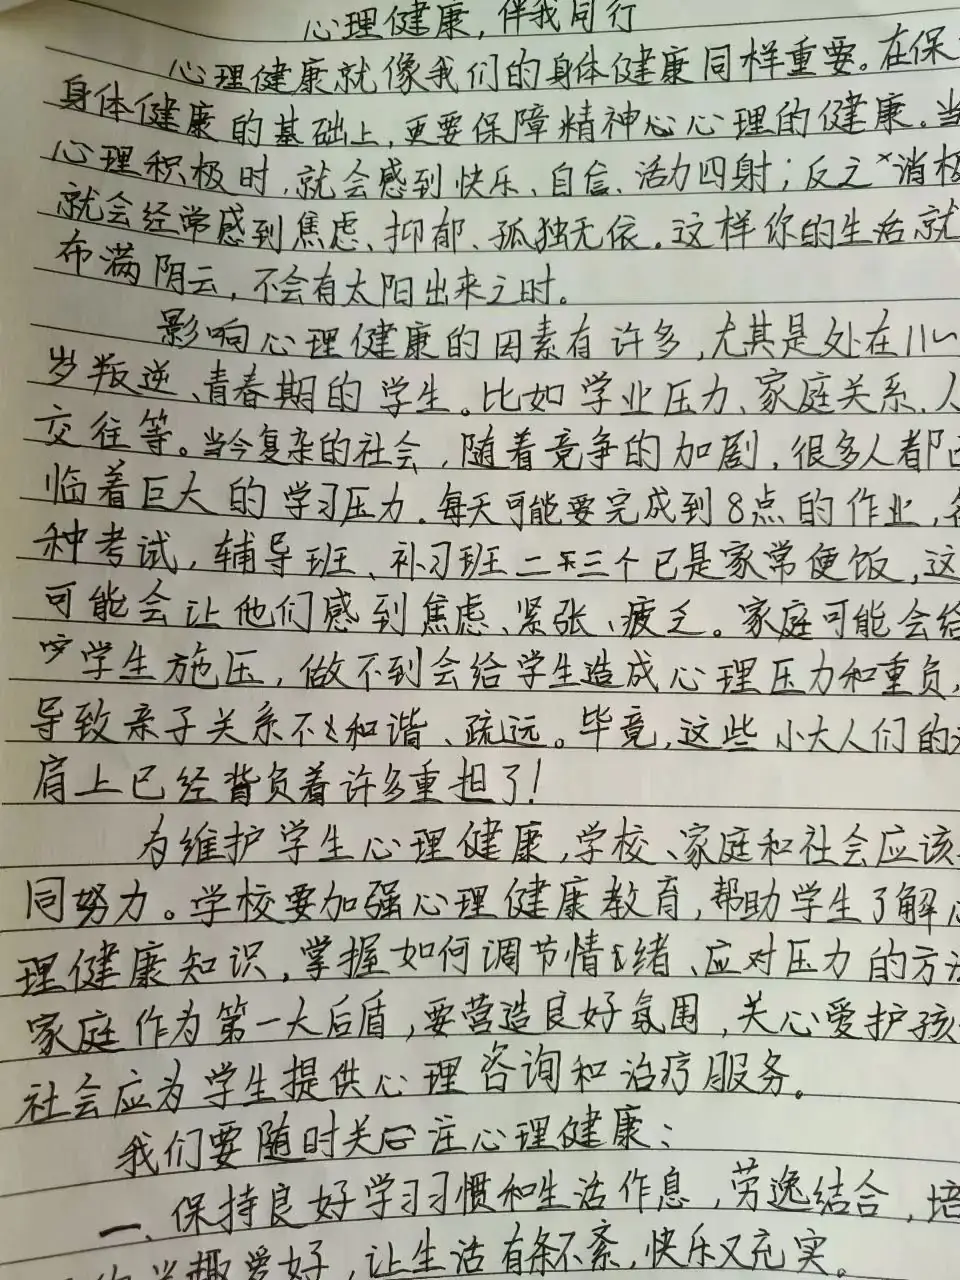 心理健康,伴我同行
心理健康就像我们的身体健康同样重要。在保
身体健康的基础上,更要保障精神心心理的健康。当
心理积极时,就会感到快乐、自信、活力四射;反之消极
就会经常感到焦虑、抑郁、孤独无依。这样你的生活就
布满阴云,不会有太阳出来之时。
影响心理健康的因素有许多,尤其是处在11~
岁叛逆、青春期的学生。比如学业压力、家庭关系、人
交往等。当今复杂的社会,随着竞争的加剧,很多人都面
临着巨大的学习压力。每天可能要完成到8点的作业,各
种考试,辅导班、补习班二五三个已是家常便饭,这
可能会让他们感到焦虑、紧张、疲乏。家庭可能会给
学生施压,做不到会给学生造成心理压力和重负,
导致亲子关系不和谐、疏远。毕竟,这些小大人们的
肩上已经背负着许多重担了!
为维护学生心理健康,学校、家庭和社会应该
同努力。学校要加强心理健康教育,帮助学生了解心
理健康知识,掌握如何调节情绪、应对压力的方法
家庭作为第一大后盾,要营造良好氛围,关心爱护孩
社会应为学生提供心理咨询和治疗服务。
我们要随时关注心理健康:
一、保持良好学习习惯和生活作息,劳逸结合,培
兴趣爱好,让生活有条不紊,快乐又充实。